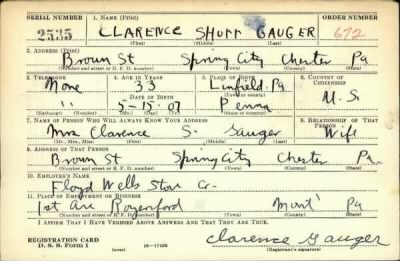 SERIAL NUMBER 1. NAME (Print) ORDER NUMBER
2535 CLARENCE SHUPP GAUGER 672
(First) (Middle) (Last)
2. ADDRESS (Print)
Brown St Spring City Chester Pa
(Number and street or R. F. D. number) (Town) (County) (State)
3. TELEPHONE 4. AGE IN YEARS 5. PLACE OF BIRTH 6. COUNTRY OF CITIZENSHIP
None 33 Linfield, Pa
DATE OF BIRTH
" 5-15-07 Penna U.S.
(Mo.) (Day) (Yr.)
7. NAME OF PERSON WHO WILL ALWAYS KNOW YOUR ADDRESS 8. RELATIONSHIP OF THAT PERSON
Mrs Clarence S. Gauger Wife
(Mr., Mrs., Miss) (First) (Middle) (Last)
9. ADDRESS OF THAT PERSON
Brown St Spring City Chester Pa.
(Number and street or R. F. D. number) (Town) (County) (State)
10. EMPLOYER'S NAME
Floyd Wells Stove Co.
11. PLACE OF EMPLOYMENT OR BUSINESS
1st Ave Royersford Mont' Pa
(Number and street or R. F. D. number) (Town) (County) (State)
I AFFIRM THAT I HAVE VERIFIED ABOVE ANSWERS AND THAT THEY ARE TRUE.
REGISTRATION CARD
D. S. S. Form 1 (over) 16—17105 Clarence Gauger
(Registrant's signature)